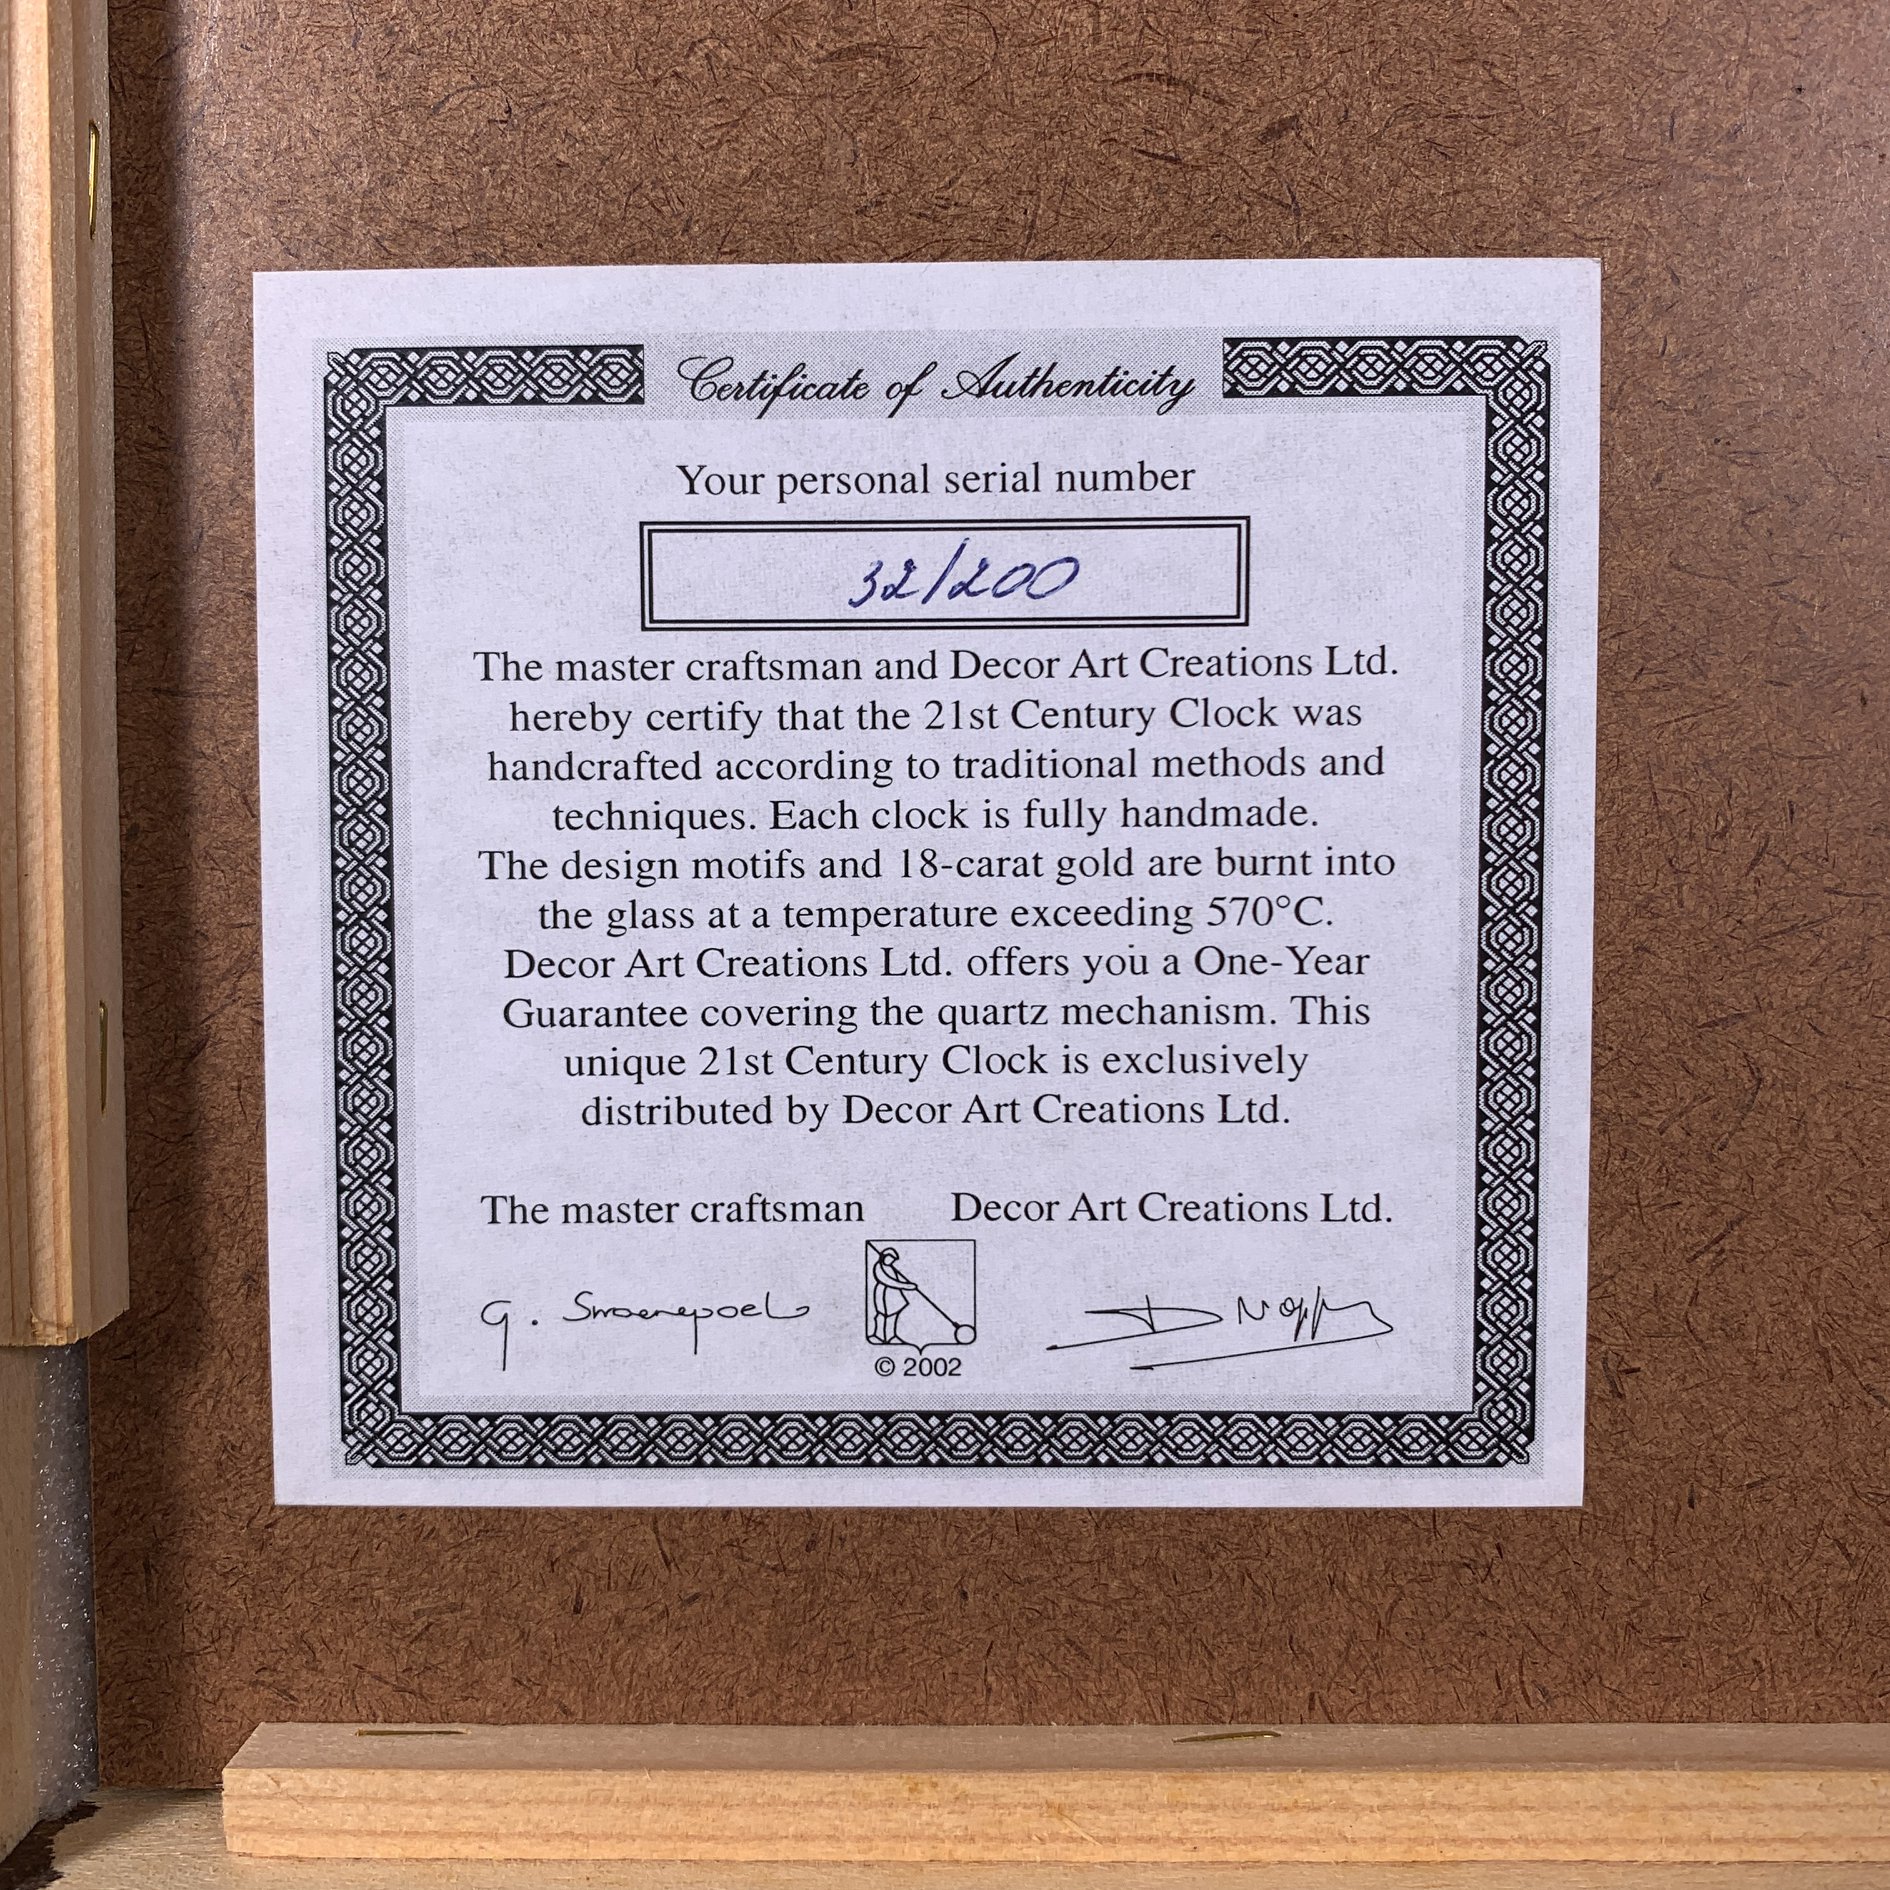 Certificate of Authenticity
Your personal serial number
32/200
The master craftsman and Decor Art Creations Ltd.
hereby certify that the 21st Century Clock was
handcrafted according to traditional methods and
techniques. Each clock is fully handmade.
The design motifs and 18-carat gold are burnt into
the glass at a temperature exceeding 570°C.
Decor Art Creations Ltd. offers you a One-Year
Guarantee covering the quartz mechanism. This
unique 21st Century Clock is exclusively
distributed by Decor Art Creations Ltd.
The master craftsman Decor Art Creations Ltd.
G.
© 2002